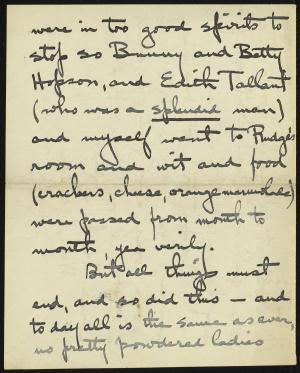 were in too good spirits to
stop so Bunny and Betty
Hopson, and Edith Tallant
(who was a splendid man)
and myself went to Pudge's
room and wit and food
(crackers, cheese, orange marmalade)
were passed from mouth to
mouth, yea verily.
But all things must
end, and so did this — and
today all is the same as ever,
no pretty powdered ladies